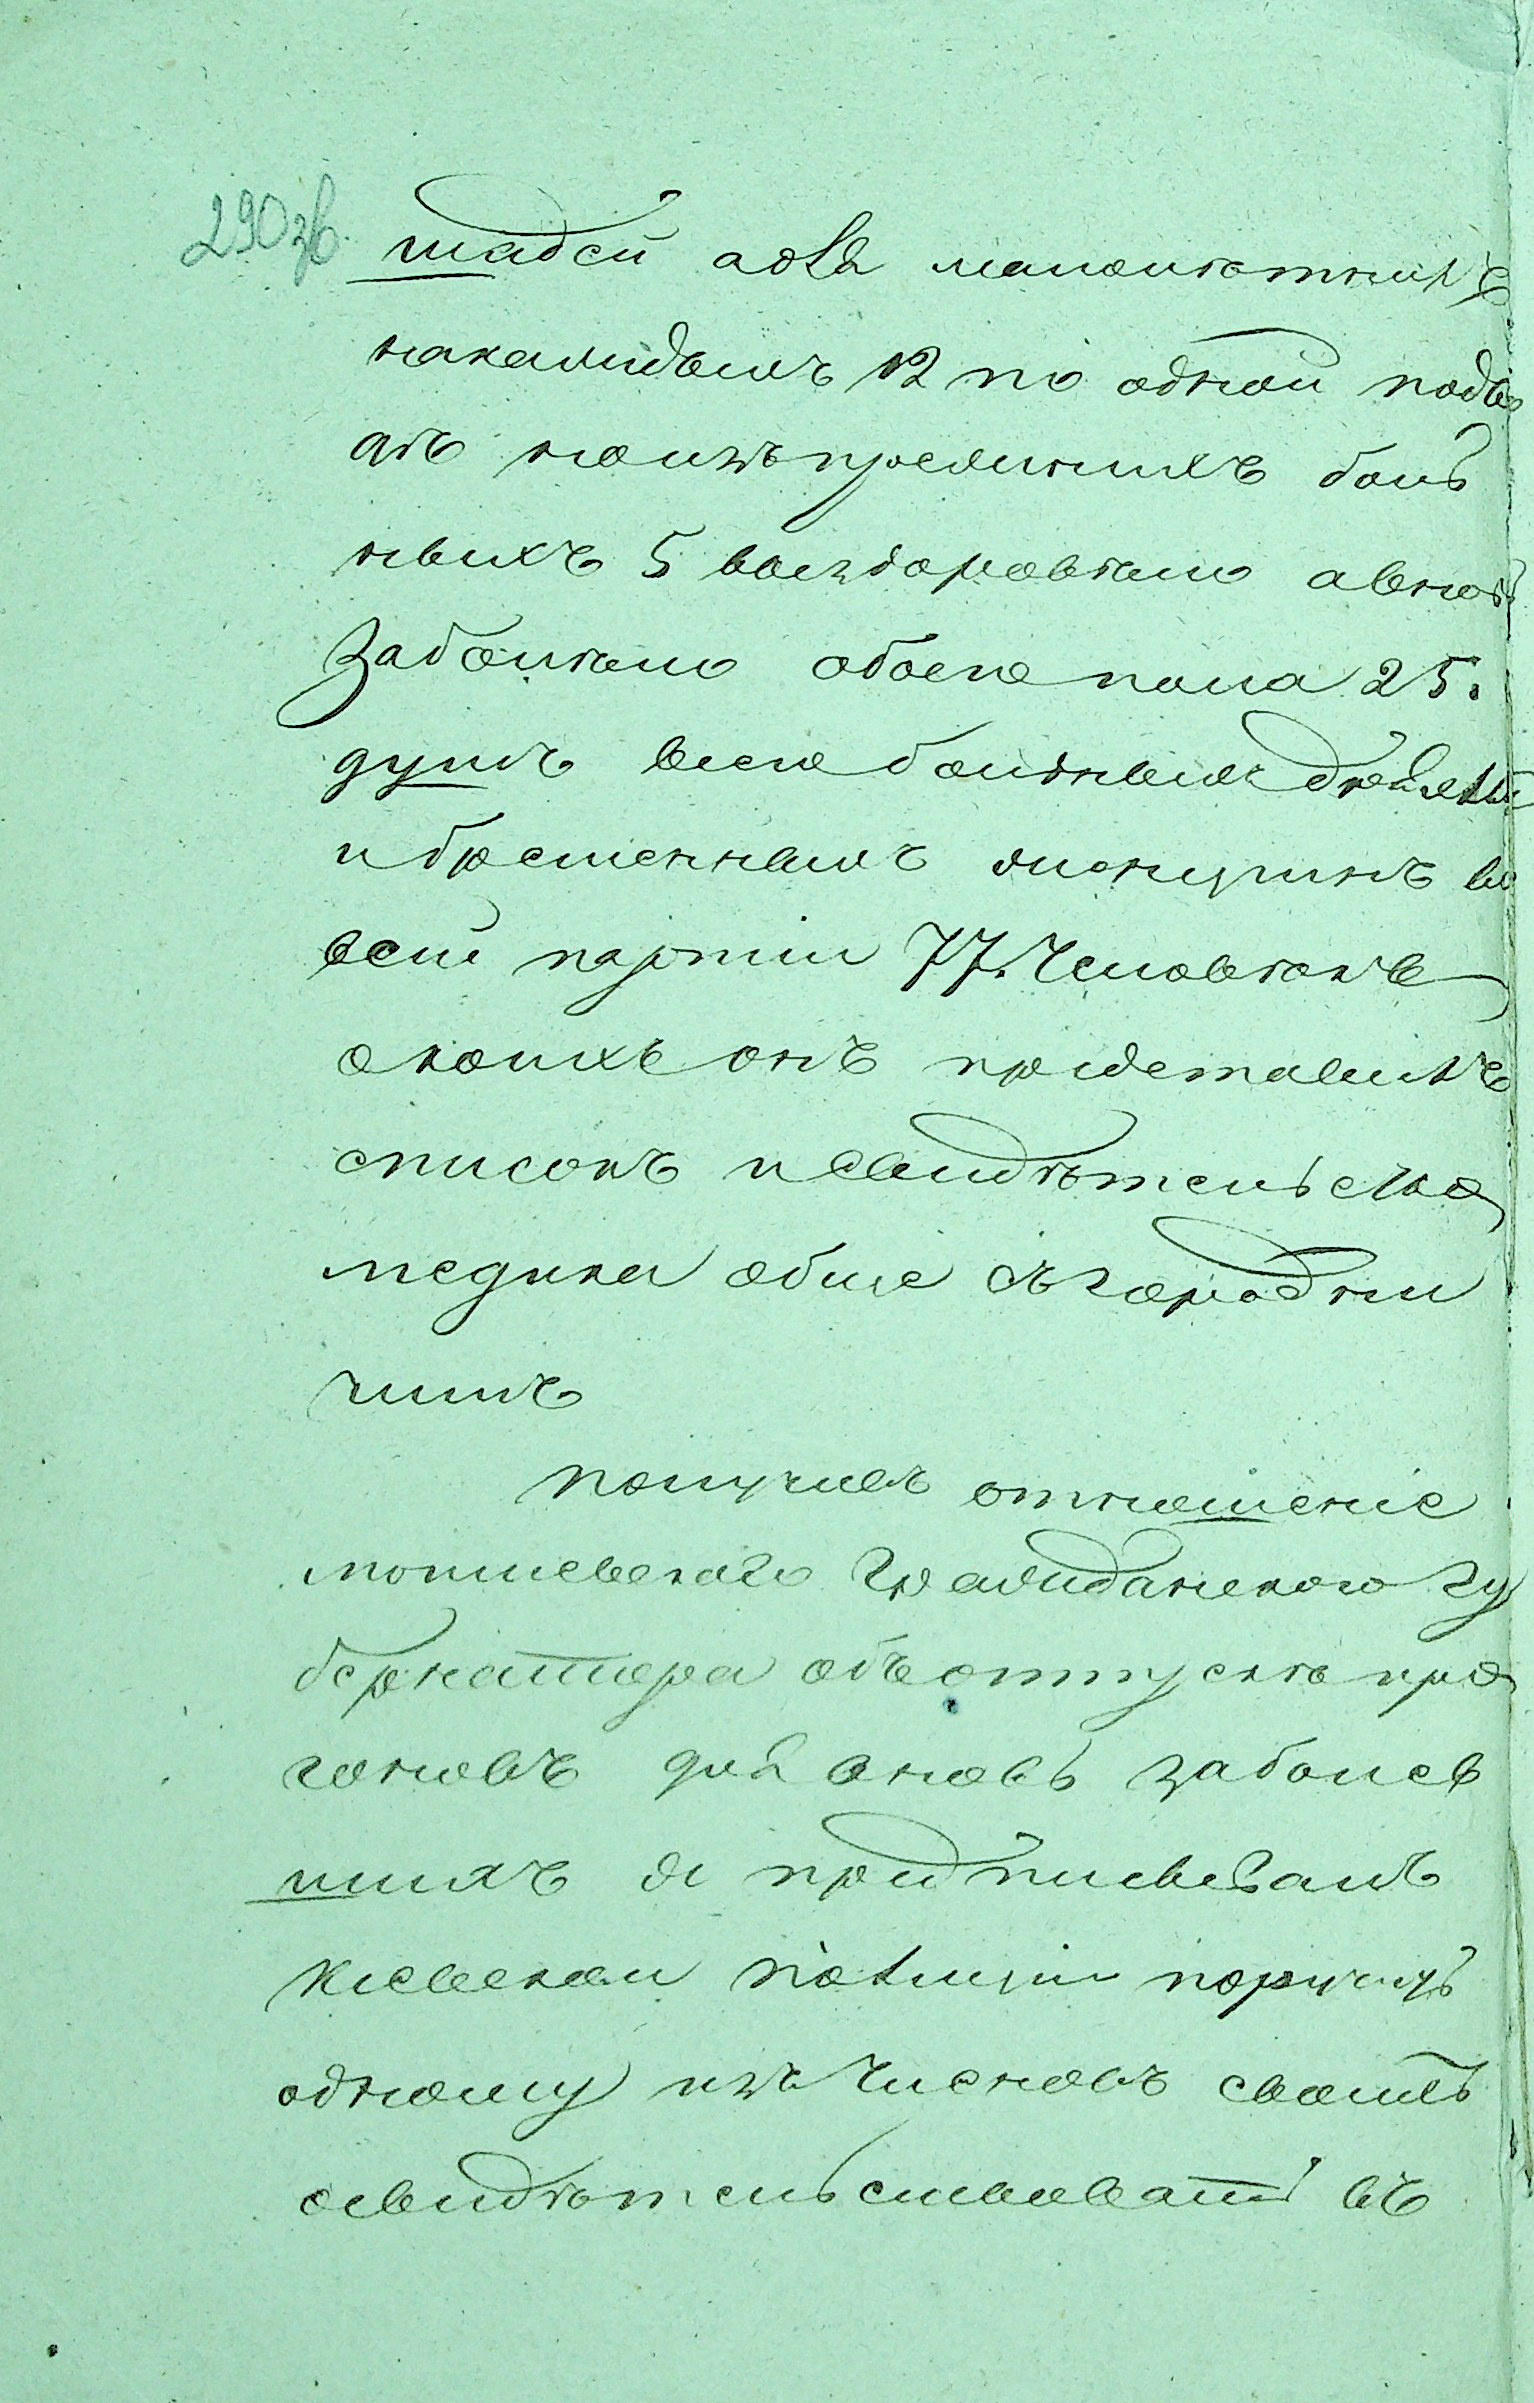 290 зв.
шадей адля малолѣтныхъ
накаждыхъ 12 по одной подво
дѣ ноизъ прежнихъ боль
ныхъ 5 выздоровѣло авновь
Заболѣло обоего пола 25.
душъ всего больныхъ дѣтей
и беременныхъ женщинъ во
всей партіи 77. Человѣкъ
окоихъ онъ представилъ
списокъ и Свидѣтельство
медика обще съ городни
чимъ
получивъ отношеніе
могилевскаго Гражданскаго Гу
бернатора объ отпускѣ про
гоновъ для вновь заболев
шихъ я предписывалъ
киевской полиціи поручить
одному изъ Членовъ своихъ
освидѣтельствовать въ